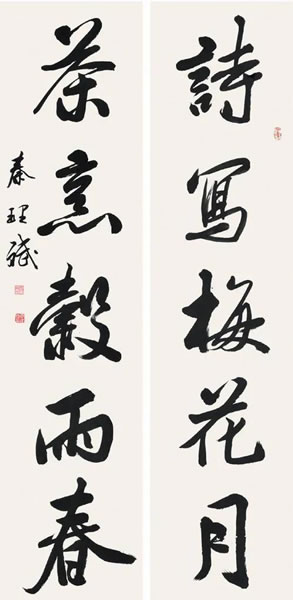 詩寫梅花月
茶烹穀雨春
秦理斌